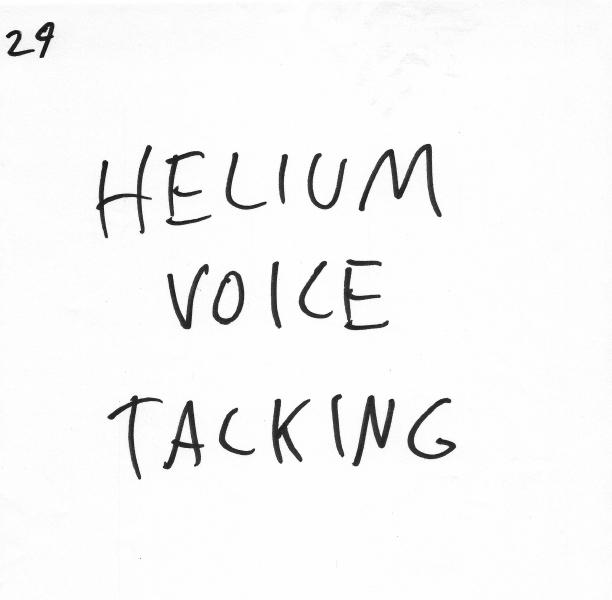 24
HELIUM
VOICE
TACKING